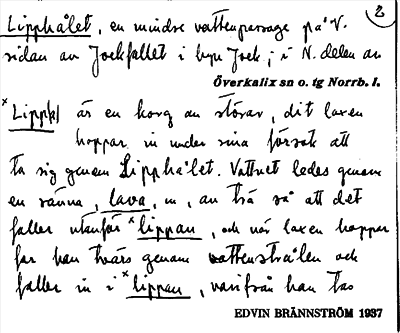 2
Lipphålet, en mindre vattenpassage på V.
sidan av Jockfallet i byn Jock; i N. delen av
Överkalix sn o. tg Norrb. l.
ˣLipp(k) är en korg av störar, dit laxen
hoppar in under sina försök att
ta sig genom Lipphålet. Vattnet ledes genom
en ränna, lava, m, av trä så att det
faller utanför ˣlippan, och när laxen hoppar
far han tvärs genom vattenstrålen och
faller in i ˣlippan, varifrån han tas
EDVIN BRÄNNSTRÖM 1937